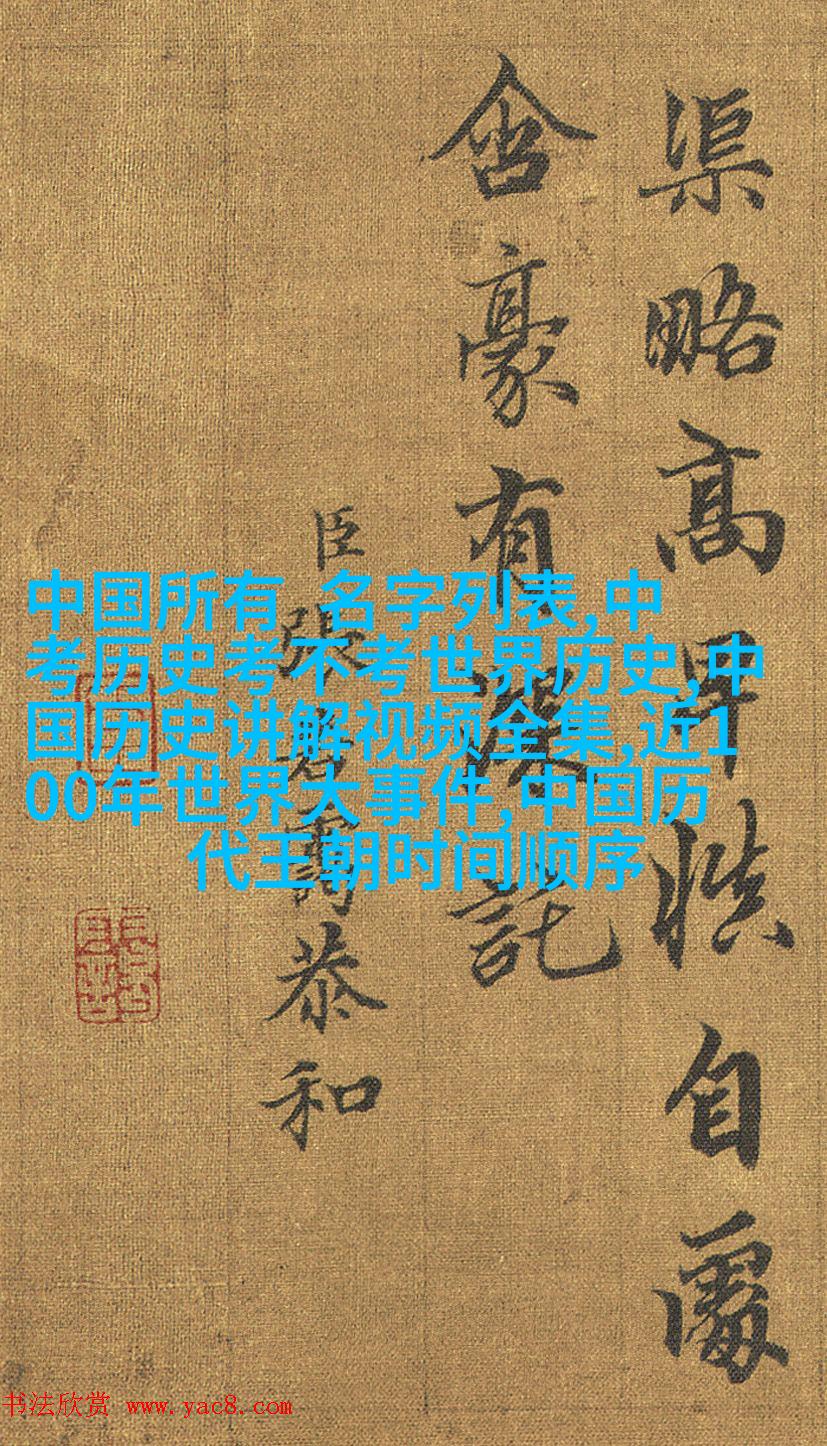 渠略高卑慎自處
含豪有深託
臣張若靄恭和
中国所有 名字列表,中
考历史考不考世界历史,中
国历史讲解视频全集,近1
00年世界大事件,中国历
代王朝时间顺序
书法欣赏 www.yac8.com